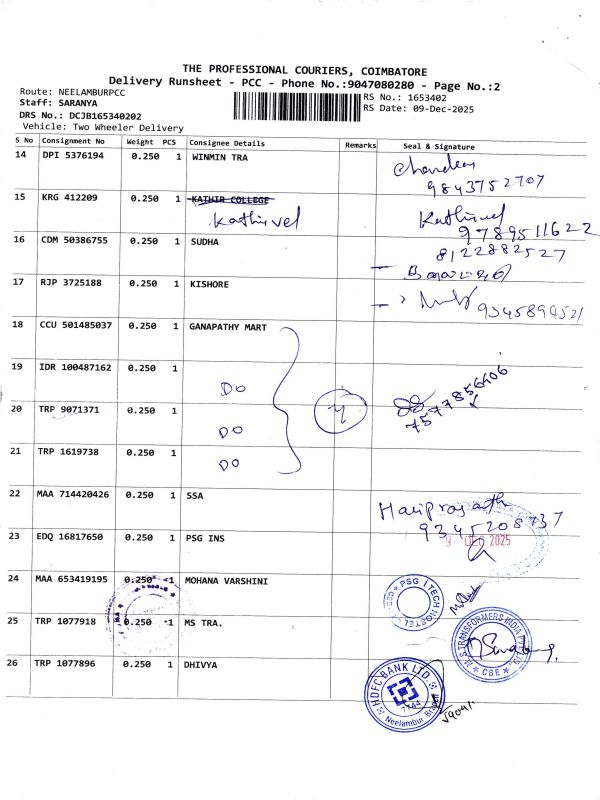 THE PROFESSIONAL COURIERS, COIMBATORE
Delivery Runsheet - PCC - Phone No.:9047080280 - Page No.:2
Route: NEELAMBURPCC
Staff: SARANYA
DRS No.: DCJB165340202
Vehicle: Two Wheeler Delivery
RS No.: 1653402
RS Date: 09-Dec-2025
S No Consignment No Weight PCS Consignee Details Remarks Seal & Signature
14 DPI 5376194 0.250 1 WINMIN TRA
Chandran
9843752707
15 KRG 412209 0.250 1 KATHIR COLLEGE
Kathirvel Kathirvel
9789511622
16 CDM 50386755 0.250 1 SUDHA
8122882527
17 RJP 3725188 0.250 1 KISHORE
9345899521
18 CCU 501485037 0.250 1 GANAPATHY MART
19 IDR 100487162 0.250 1
DO
20 TRP 9071371 0.250 1
4
7577856406
DO
21 TRP 1619738 0.250 1
DO
22 MAA 714420426 0.250 1 SSA
Hariprasanth
9345208737
23 EDQ 16817650 0.250 1 PSG INS
9 DEC 2025
24 MAA 653419195 0.250 1 MOHANA VARSHINI
PSG ITECH HOSTEL
25 TRP 1077918 0.250 1 MS TRA.
M.S. TRANSFORMERS INDIA PVT LTD
CBE
26 TRP 1077896 0.250 1 DHIVYA
HDFC BANK LTD.
Neelambur Branch